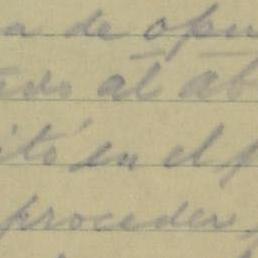 a de opu
ado al ab
ito en el p
proceder